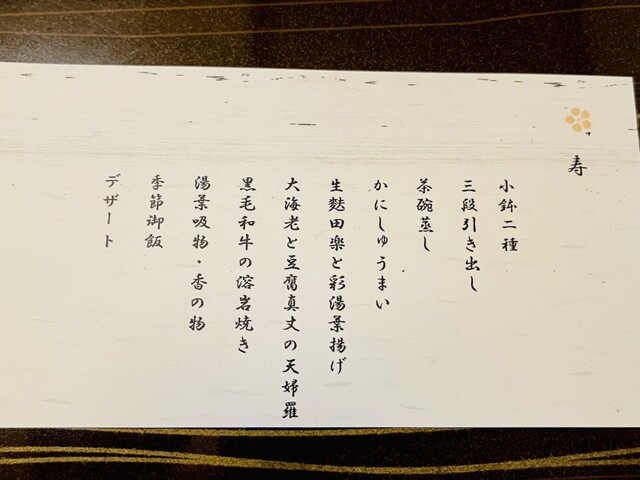 寿
小鉢二種
三段引き出し
茶碗蒸し
かにしゅうまい
生麩田楽と彩湯葉揚げ
大海老と豆腐真丈の天婦羅
黒毛和牛の溶岩焼き
湯葉吸物・香の物
季節御飯
デザート